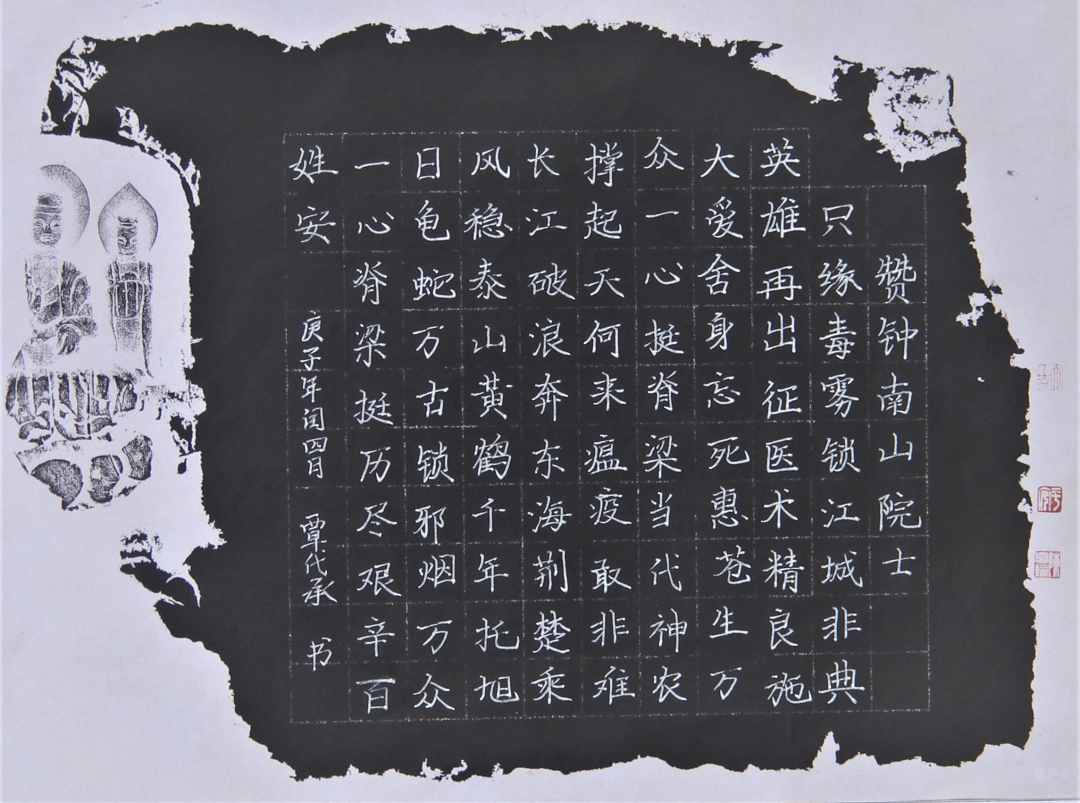 赞钟南山院士
只缘毒雾锁江城非典
英雄再出征医术精良施
大爱舍身忘死惠苍生万
众一心挺脊梁当代神农
撑起天何来瘟疫敢非难
长江破浪奔东海荆楚乘
风稳泰山黄鹤千年托旭
日龟蛇万古锁邪烟万众
一心脊梁挺历尽艰辛百
姓安
庚子年闰四月 覃代承 书